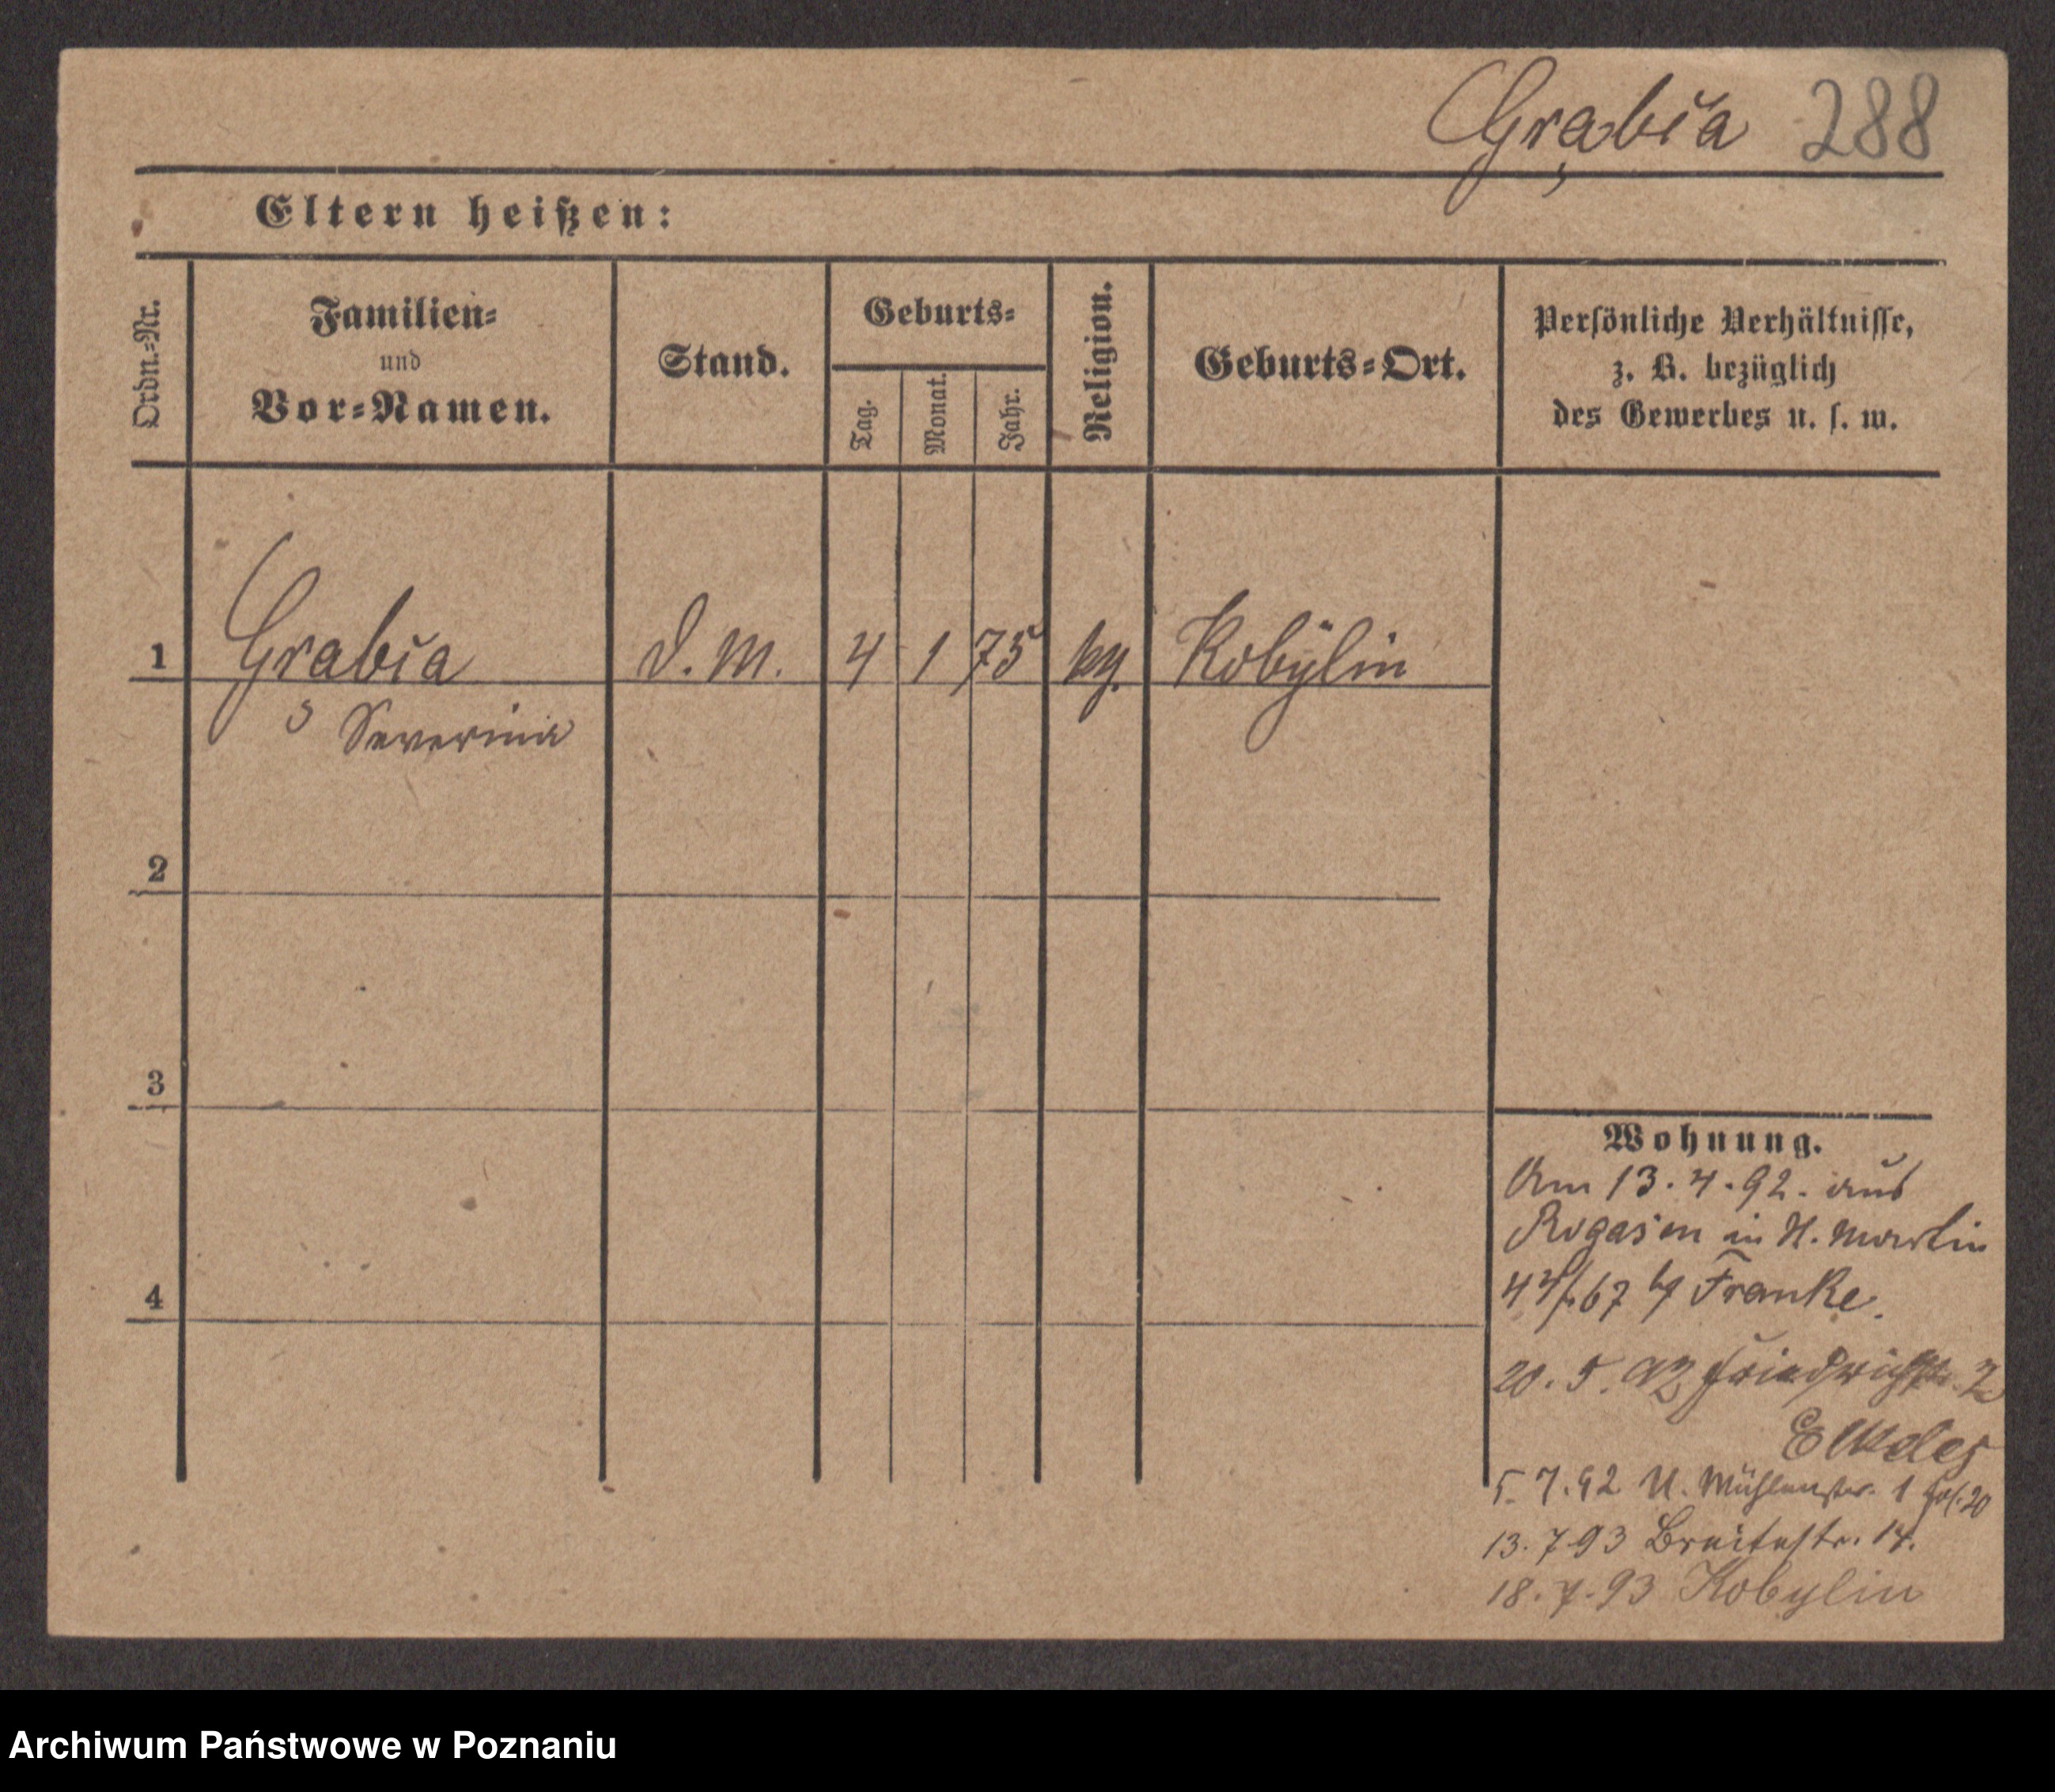 Grąbia 288
Eltern heißen:
Ordn.-Nr.
Familien-
und
Vor-Namen.
Stand.
Geburts-
Tag.
Monat.
Jahr.
Religion.
Geburts-Ort.
Persönliche Verhältnisse,
z. B. bezüglich
des Gewerbes u. s. w.
1 Grąbia D. M. 4 1 75 kg. Kobylin
Severina
2
3
4
Wohnung.
Am 13.4.92. aus
Rogasen in St. Martin
67 Franke.
20. 5. 92 Friedrichstr. 2
5. 7. 92 U. Mühlenstr. 1
13. 7 93 Breitestr. 14.
18. 7. 93 Kobylin
Archiwum Państwowe w Poznaniu